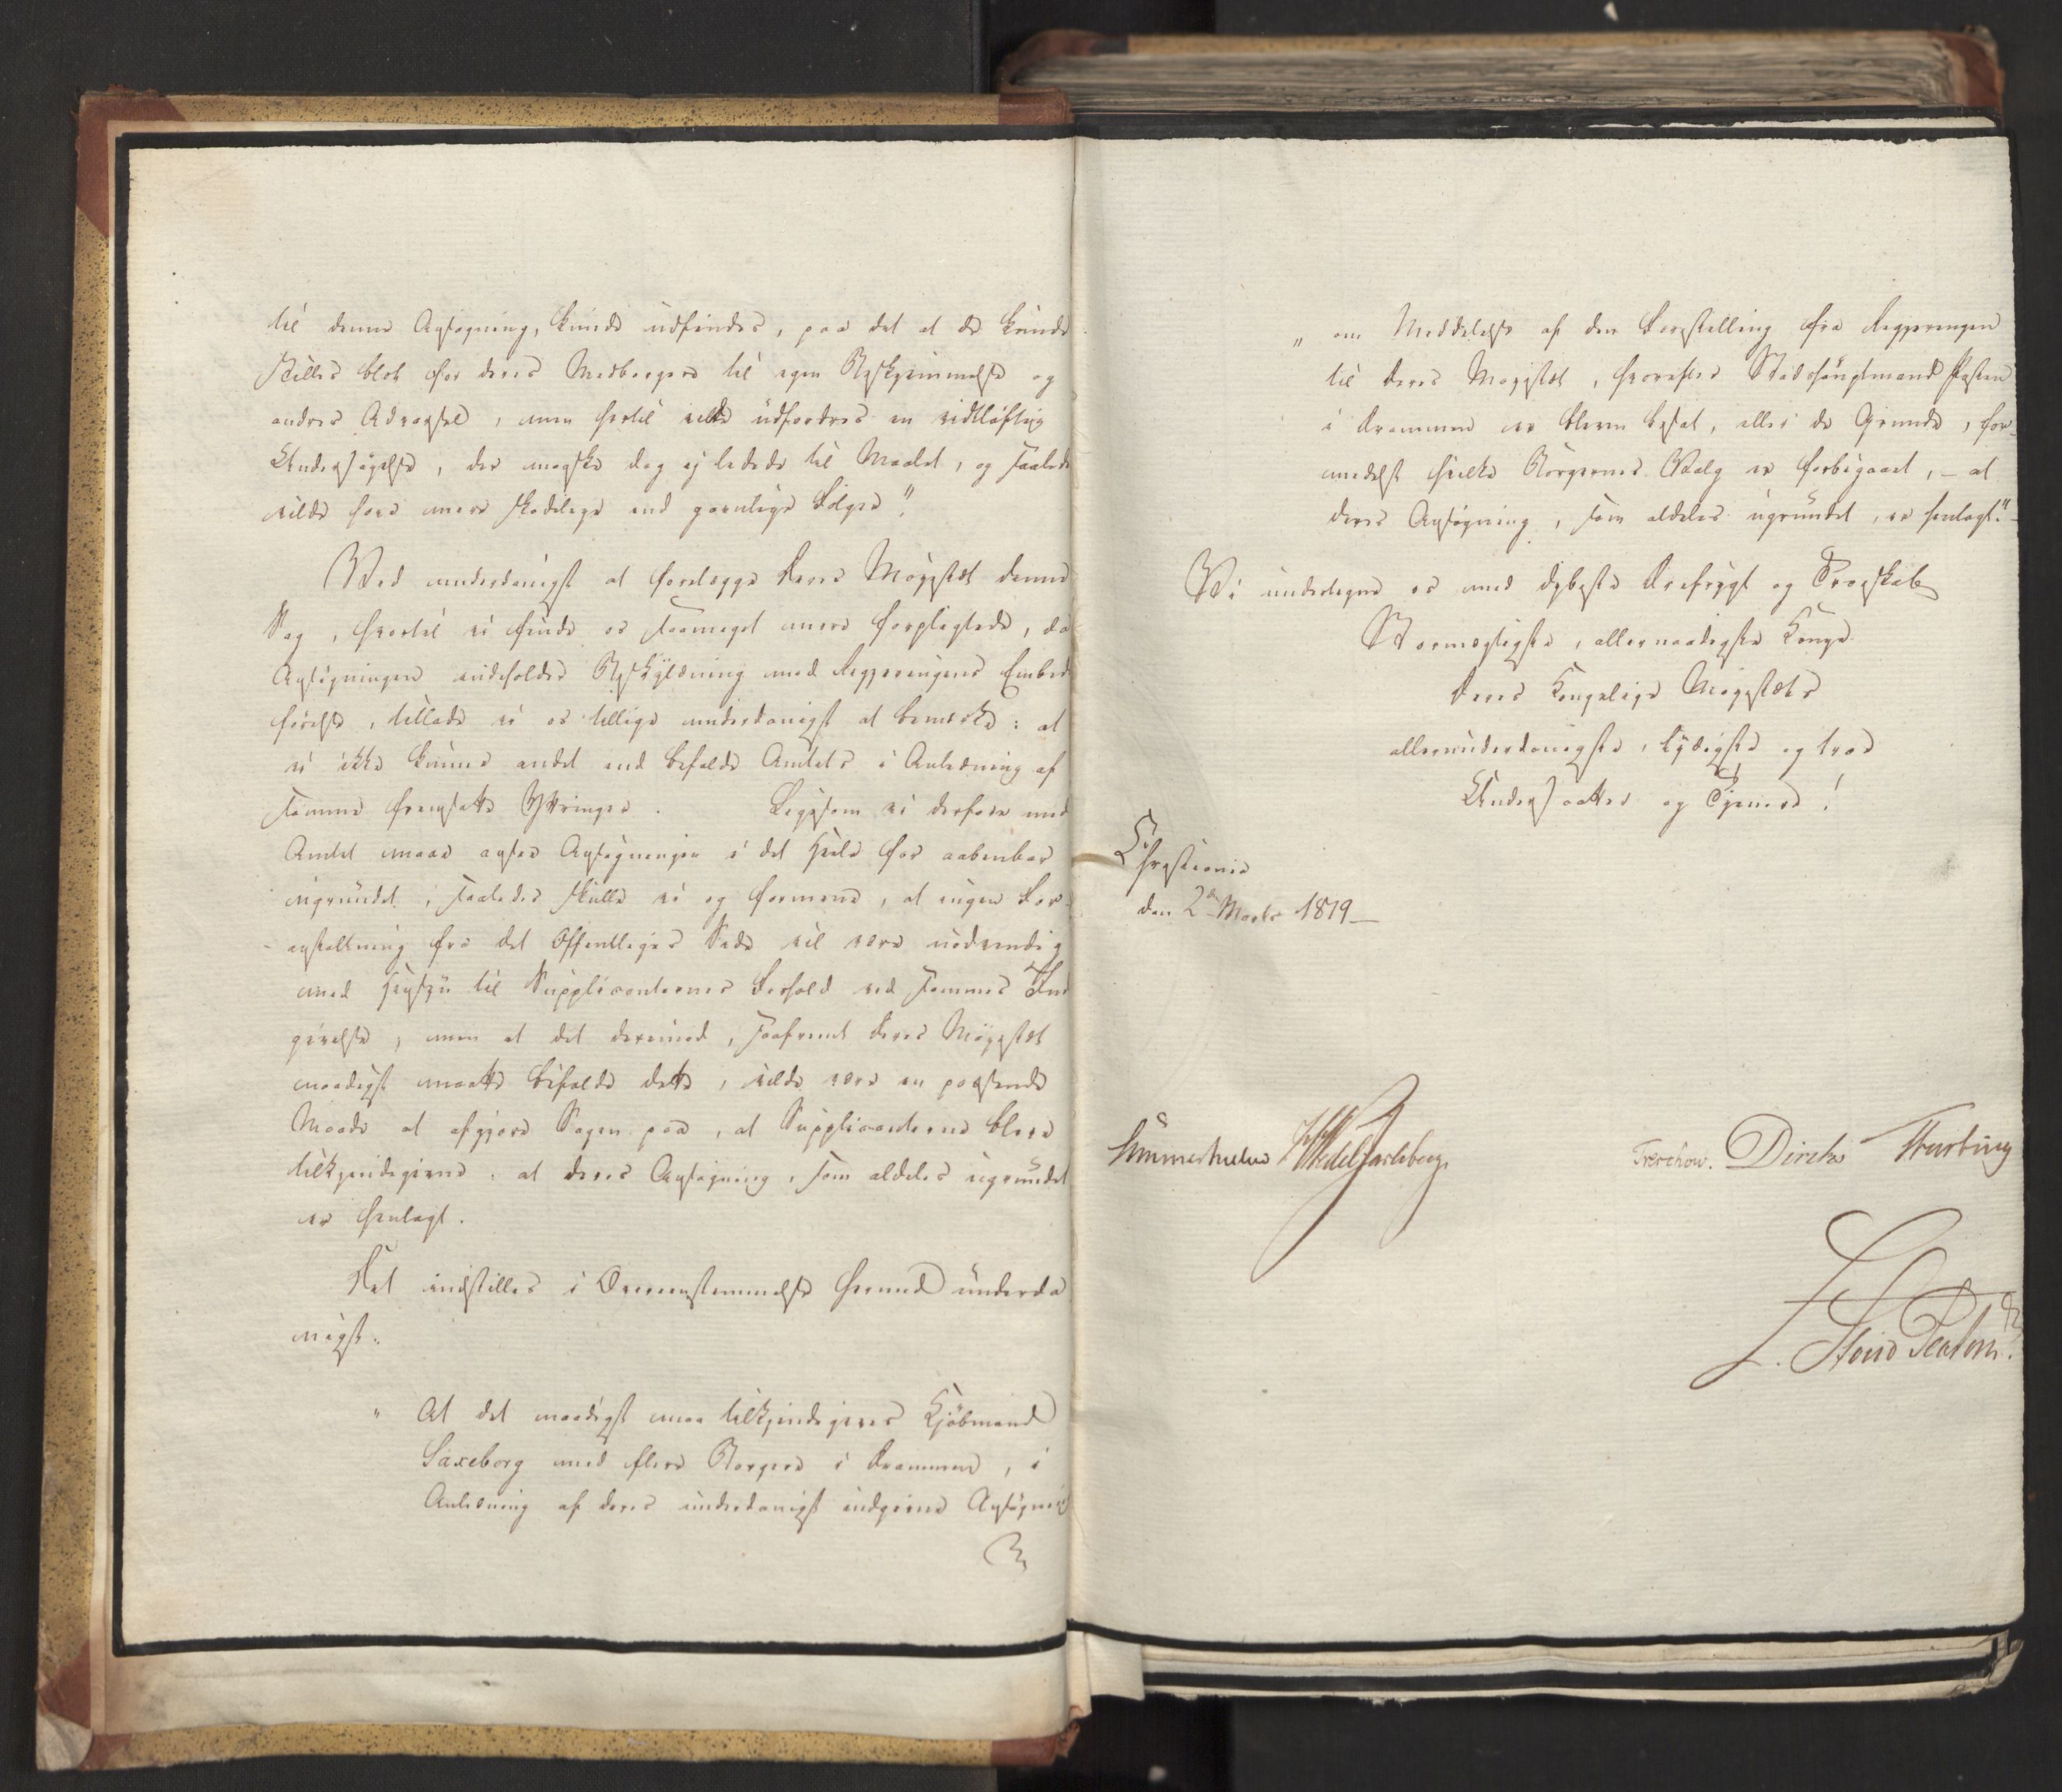 til denne Ansøgning, kunde udfindes, paa det at de kunde
stilles blot for deres Medborgere til egen Beskjæmmelse og
andres Advarsel, men hertil vilde udfordres en vidtløftig
Undersøgelse, der maaske dog ej ledede til Maalet, og saaledes
vilde have mere skadelige end gavnlige Følger."
Ved underdanigst at forelægge Deres Majestæt denne
Sag, hvortil vi finde os saameget mere forpligtede, da
Ansøgningen indeholder Beskyldning mod Regjeringens Embeds
førelse, tillade vi os tillige underdanigst at bemærke: at
vi ikke kunne andet end bifalde Amtets i Anledning af
samme fremsatte Yttringer. Ligesom vi derfore med
Amtet maae ansee Ansøgningen i det Hele for aabenbar
ugrundet, saaledes skulle vi og formene, at ingen For-
anstaltning fra det Offentliges Side vil være nødvendig
med Hensyn til Supplicanternes Forhold ved sammes Ind
givelse, men at det derimod, saafremt Deres Majestæt
naadigst maatte bifalde dette, vilde være en passende
Maade at afgjøre Sagen paa, at Supplicanterne bleve
tilkjendegivne: at deres Ansøgning, som aldeles ugrundet
er henlagt.
Det indstilles i Overeensstemmelse hermed underda
nigst:
" At det naadigst maa tilkjendegives Kjøbmand
Saxeborg med flere Borgere i Drammen, i
Anledning af deres underdanigst indgivne Ansøgning
" om Meddelelse af den Forestilling fra Regjeringen
til Deres Majestæt, hvorefter Stadshauptmand Posten
i Drammen er bleven besat, eller de Grunde, for-
medelst hvilke Borgernes Valg er forbigaaet, – at
deres Ansøgning, som aldeles ugrundet, er henlagt."
Vi undertegne os med dybeste Ærefrygt og Troskab
Stormægtigste, allernaadigste Konge
Deres Kongelige Majestæts
allerunderdanigste, lydigste og troe
Undersaatter og Tjenere!
Christiania
den 2den Marts 1819
Sommerhielm Wedel Jarlsberg Treschow. Diriks Fasting